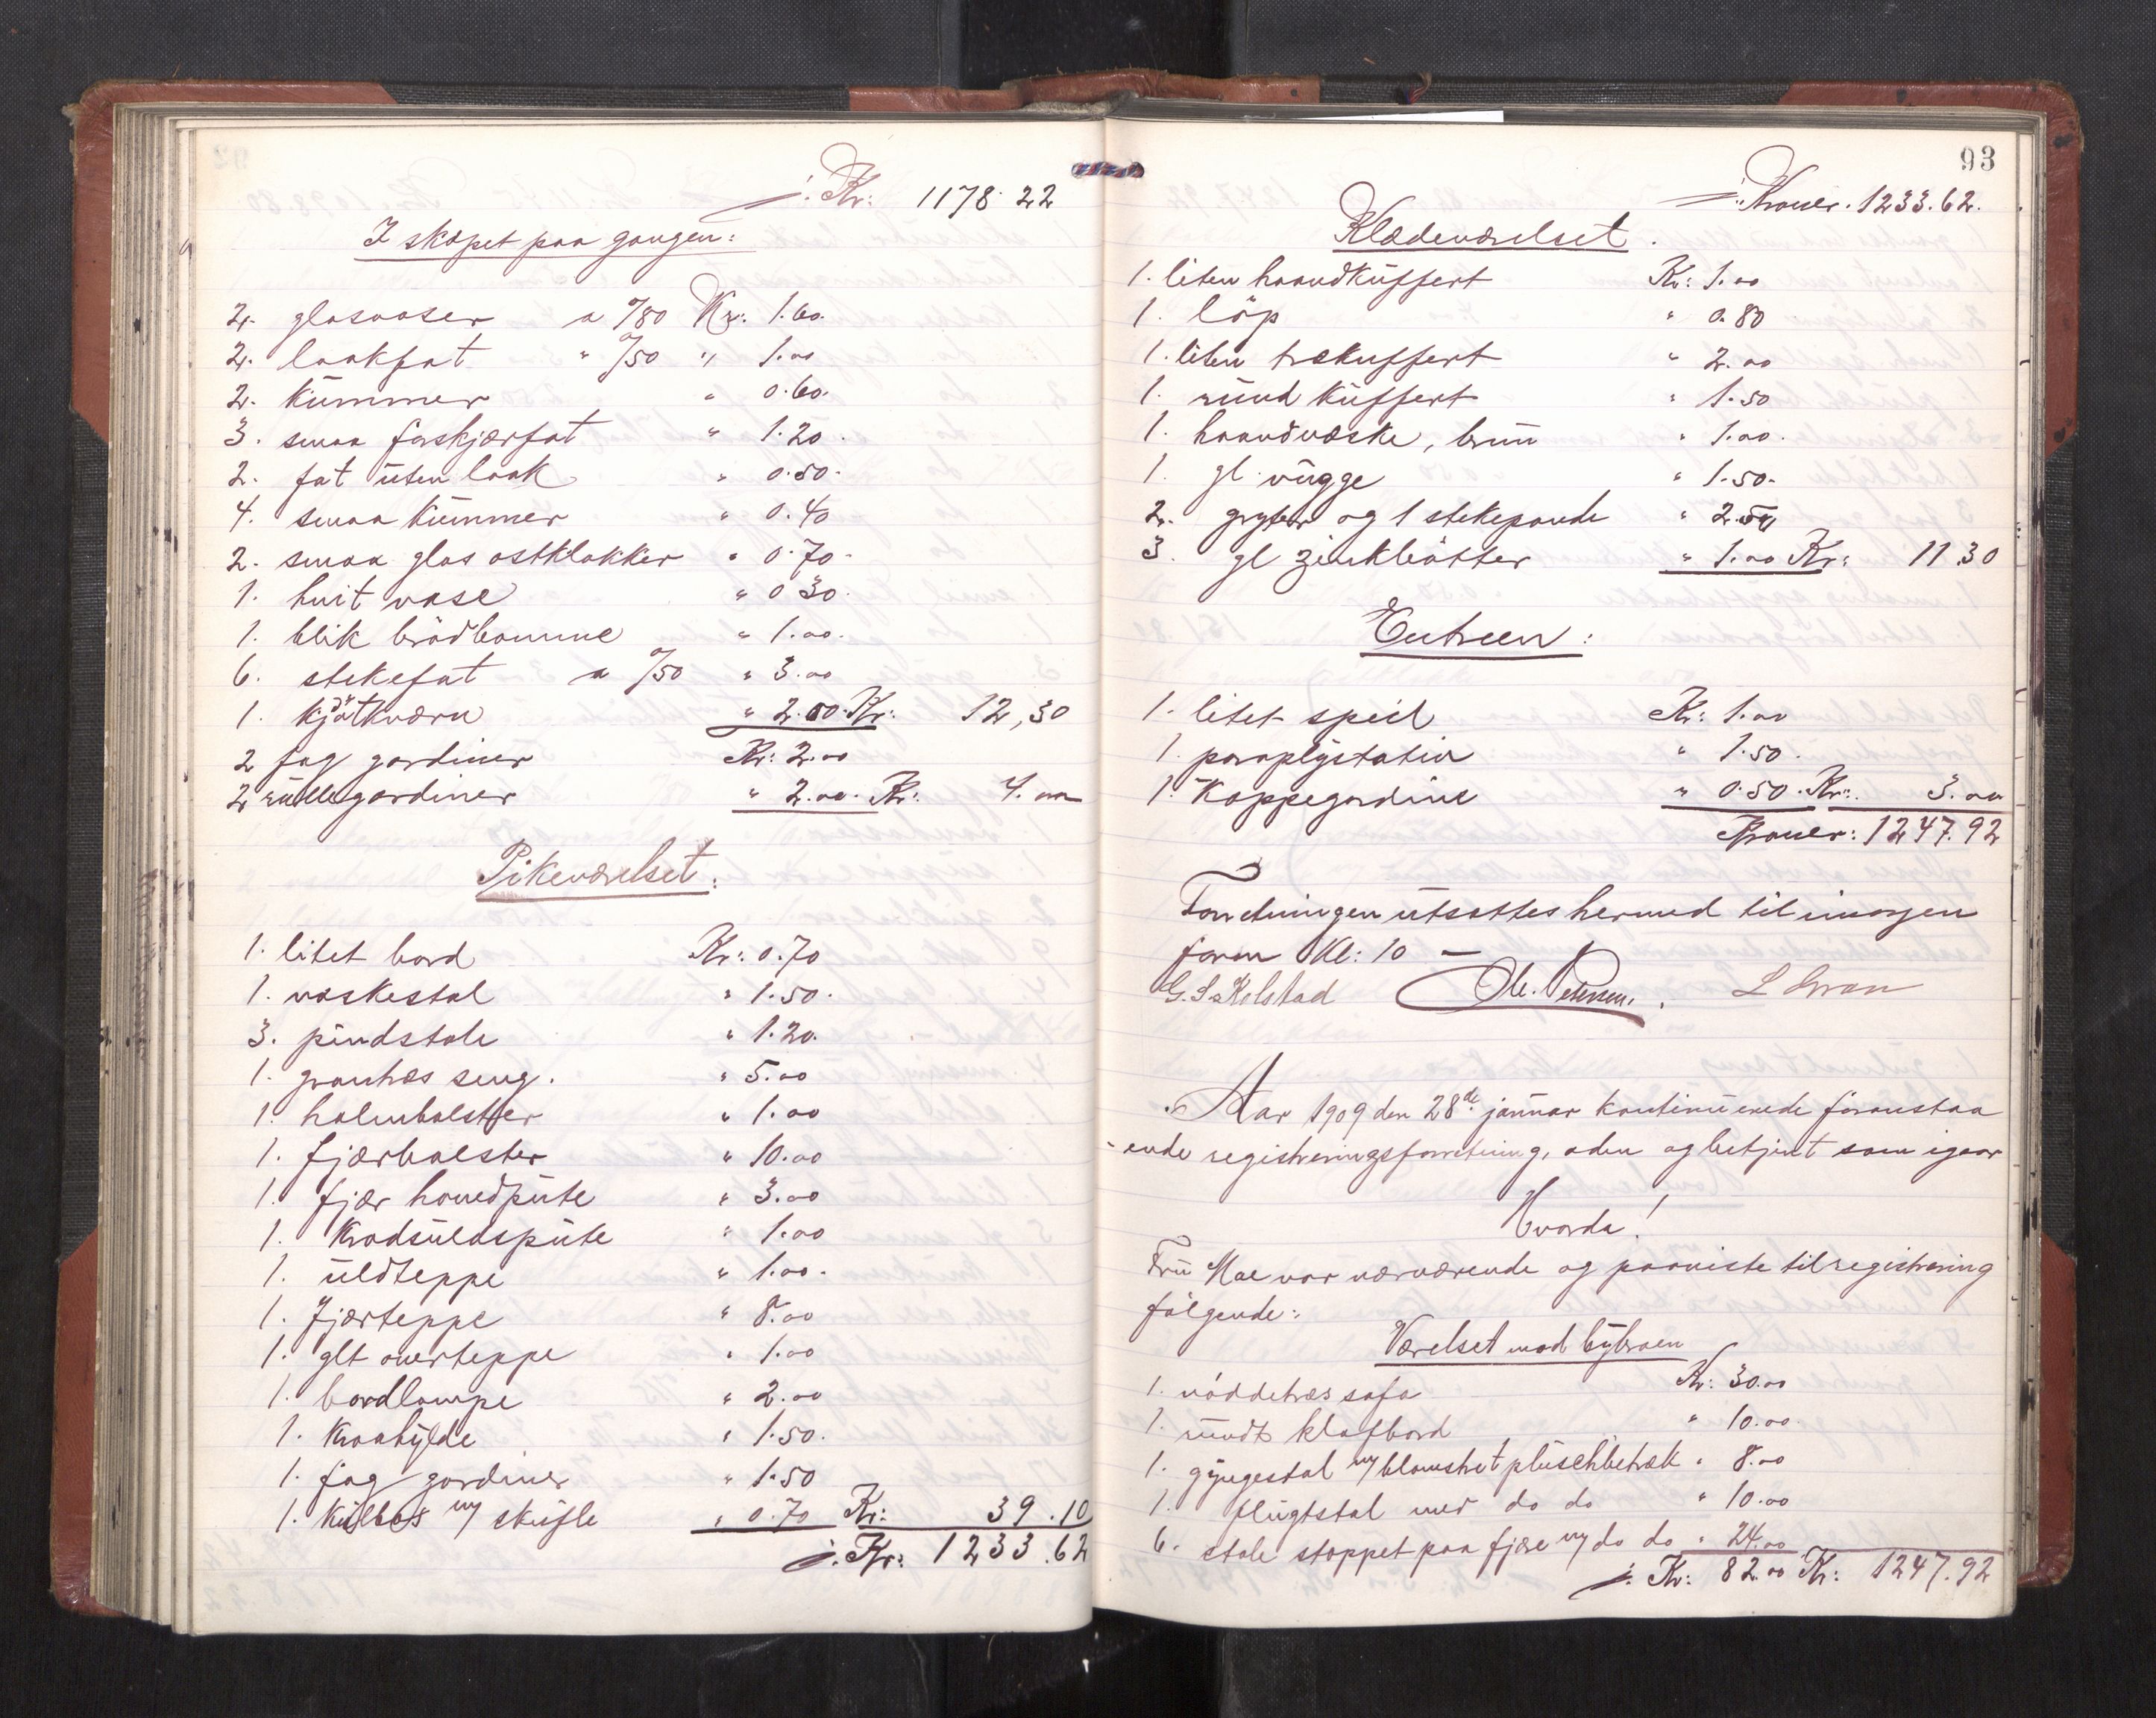 ./. Kr: 1178.22
I skapet paa gangen:
2. glasvaser a 0/80 Kr. 1.60.
2. laakfat " 0/50 " 1.00
2. Kummer " 0.60.
3. smaa forskjærfat " 1.20.
2. fat uten laak " 0.50.
4. smaa Kummer " 0.40
2. smaa glas ostklokker " 0.70.
1. hvit vase " 0 30.
1. blik brödbomme " 1.00.
6. stekefat a 0/50 " 3.00
1. kjötkværn " 2.00. Kr: 12,30
2 fag gardiner Kr: 2.00
2 rullegardiner " 2.00. Kr: 4.00
Pikeværelset:
1. litet bord Kr: 0.70
1. vaskestol " 1.50.
3. pindstole " 1.20.
1. grantræs seng. " 5.00
1. halmbolster " 1.00
1. fjærbolster " 10.00
1. fjær hovedpute " 3.00
1. Krøduldspute " 1.00
1. uldteppe " 1.00.
1. fjærteppe " 8.00
1. glt overteppe " 1.00
1. bordlampe " 2.00
1. Kroahylde " 1.50.
1. fag gardiner " 1.50
1. Kulbos m/ skufle " 0.70 Kr: 39.10
./. Kr: 1233.62
93
./. Kroner. 1233.62.
Klædeværelset.
1. liten haandkuffert Kr: 1.00
1. löp " 0.80
1. liten trækuffert " 2.00
1. rund kuffert " 1.50
1. haandvæske, brun " 1.00.
1. gl. vugge " 1.50.
2. gryter og 1 stekepande " 2.50
3. gl zinkbötter " 1.00 Kr: 11.30
Entreen:
1. litet speil Kr: 1.00
1. paraplystativ " 1.50.
1. Kappegardine " 0.50. Kr: 3.00
Kroner: 1247.92
Forretningen utsattes hermed til imorgen
form Kl: 10 —
G. S. Rolstad Ole. Petersen. L Svan
Aar 1909 den 28de januar kontinuerede foranstaa
-ende registreringsforretning, aden og betjent som igaar
Hvorda!
Fru Moe var nærværende og paaviste til registrering
følgende:
Værelset mod bybroen
1. nöddetræs sofa Kr: 30.00
1. rundt klafbord " 10.00.
1. gyngestol m/ blomstret pluschbetræk " 8.00
1. flugtstol med do do " 10.00
6. stole stoppet paa fjære m/ do do " 24.00
./. Kr: 82.00 Kr: 1247.92